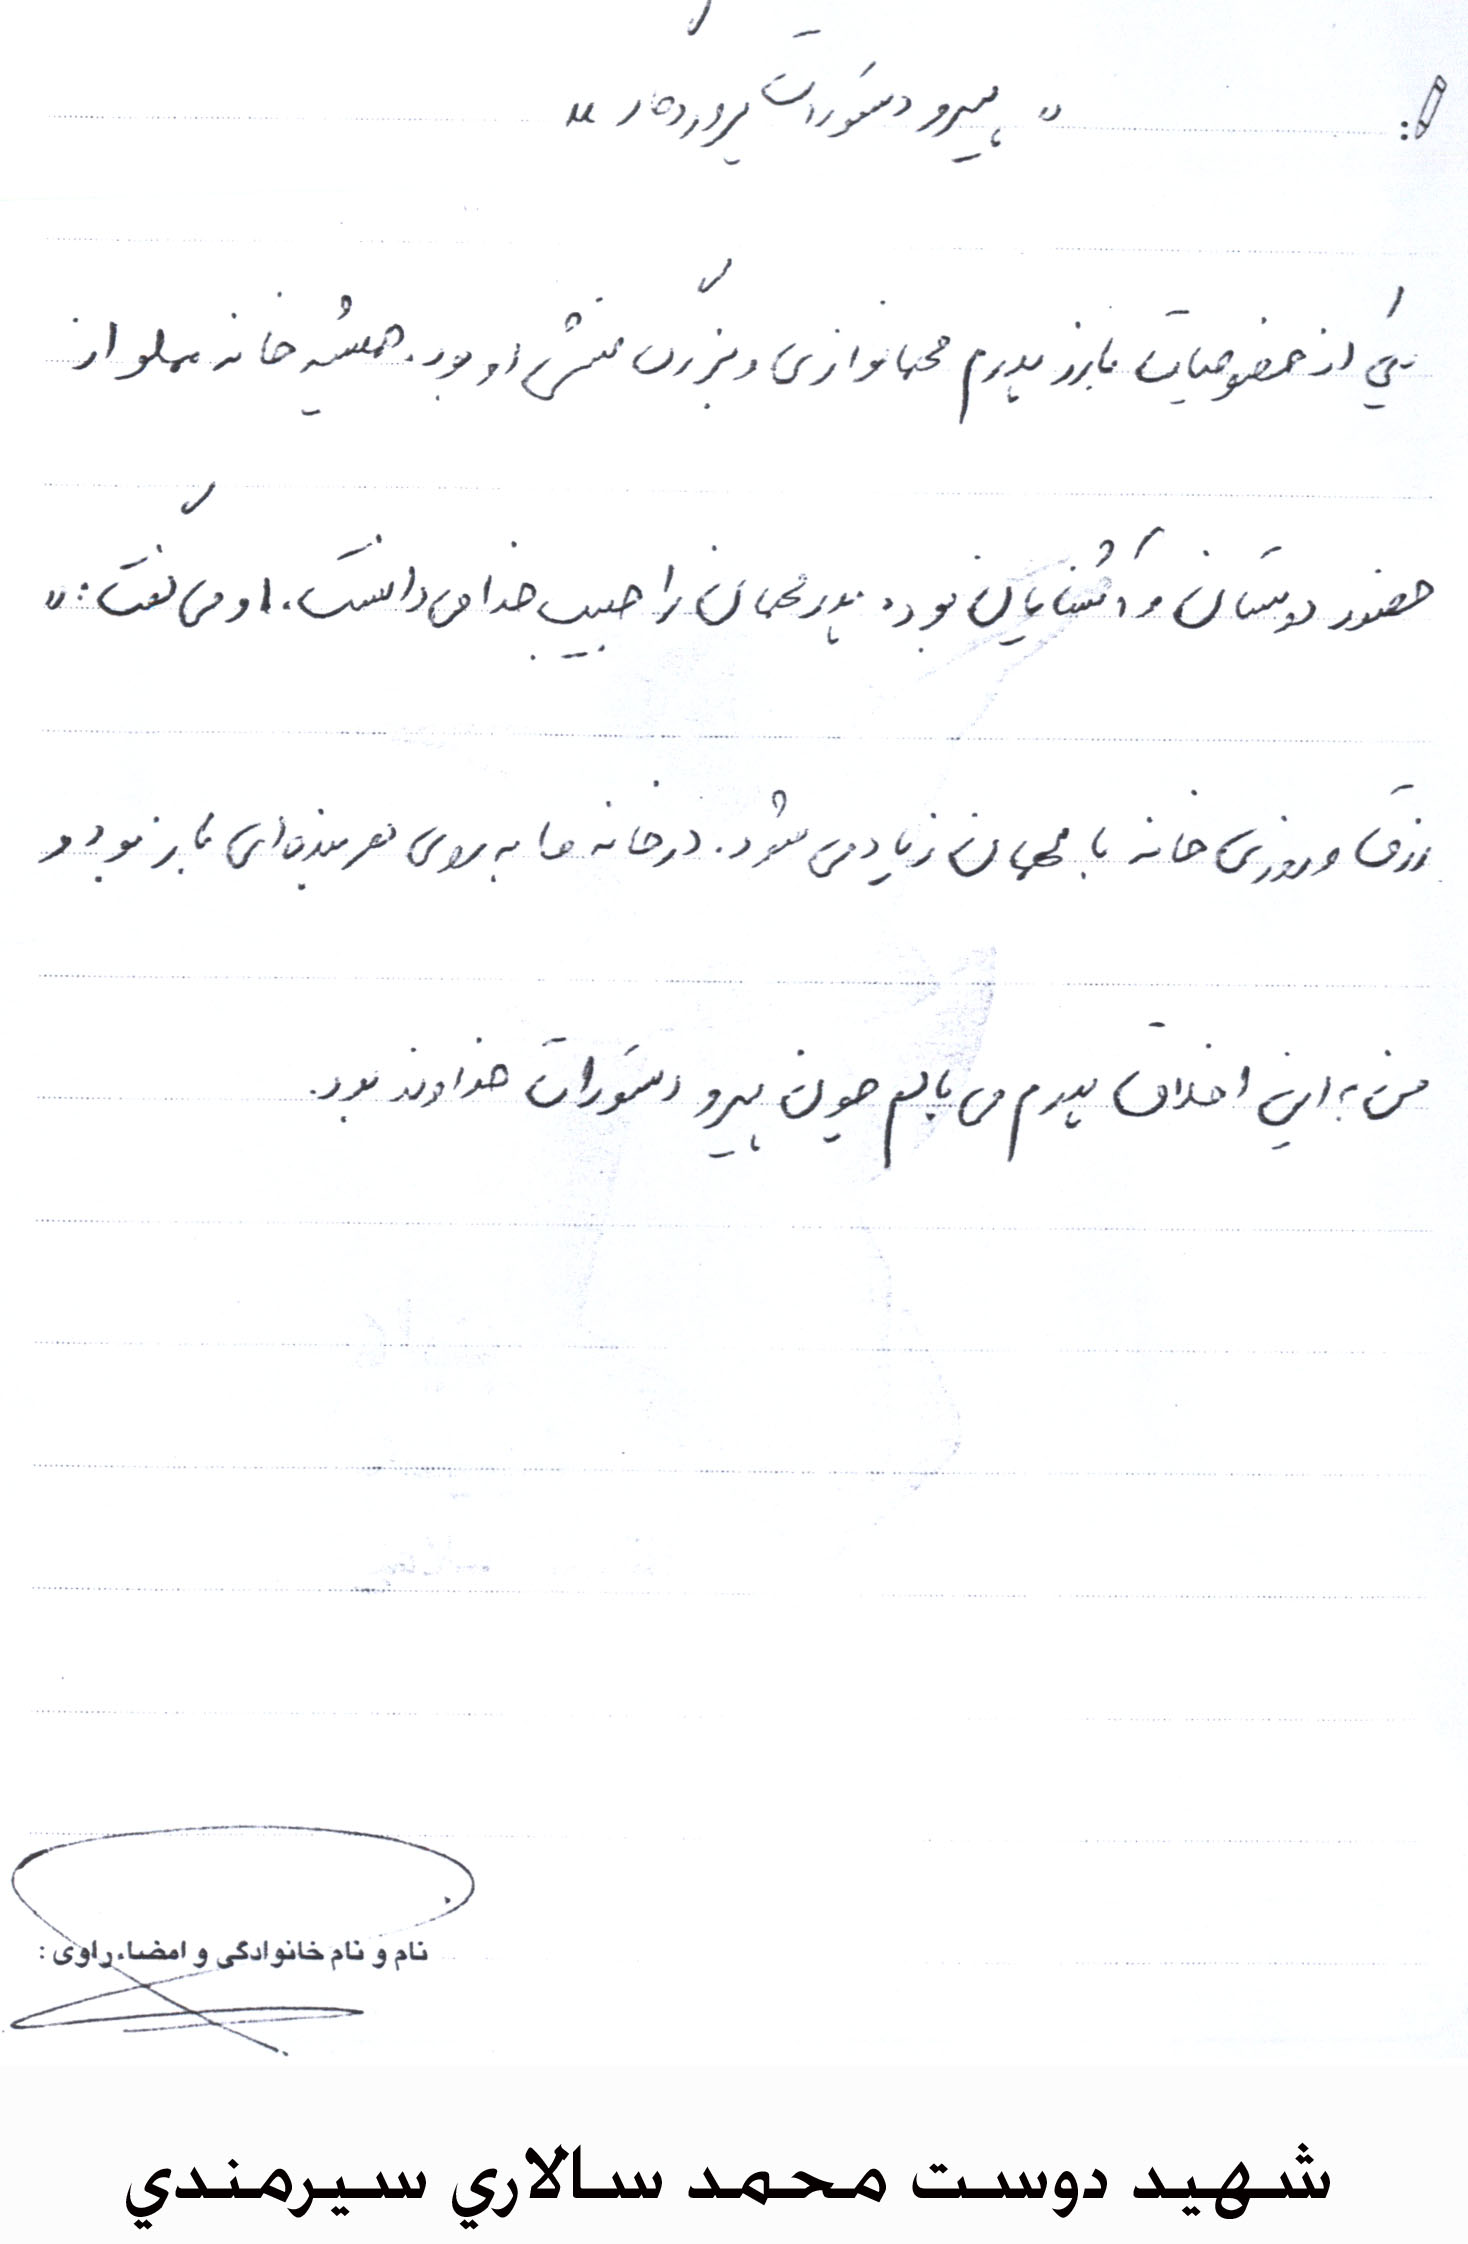 « پیرو دستورات پروردگار »
یکی از خصوصیات بارز پدرم مهمانوازی و بزرگ منشی او بود. همیشه خانه مملو از
حضور دوستان و آشنایان بود. پدر مهمان را حبیب خدا می دانست. او می گفت: «
رزق و روزی خانه با مهمان زیاد می شود. در خانه ما به روی هر بنده ای باز بود و
من به این اخلاق پدرم می بالم چون پیرو دستورات خداوند بود.
نام و نام خانوادگی و امضاء راوی :
شهيد دوست محمد سالاري سيرمندي